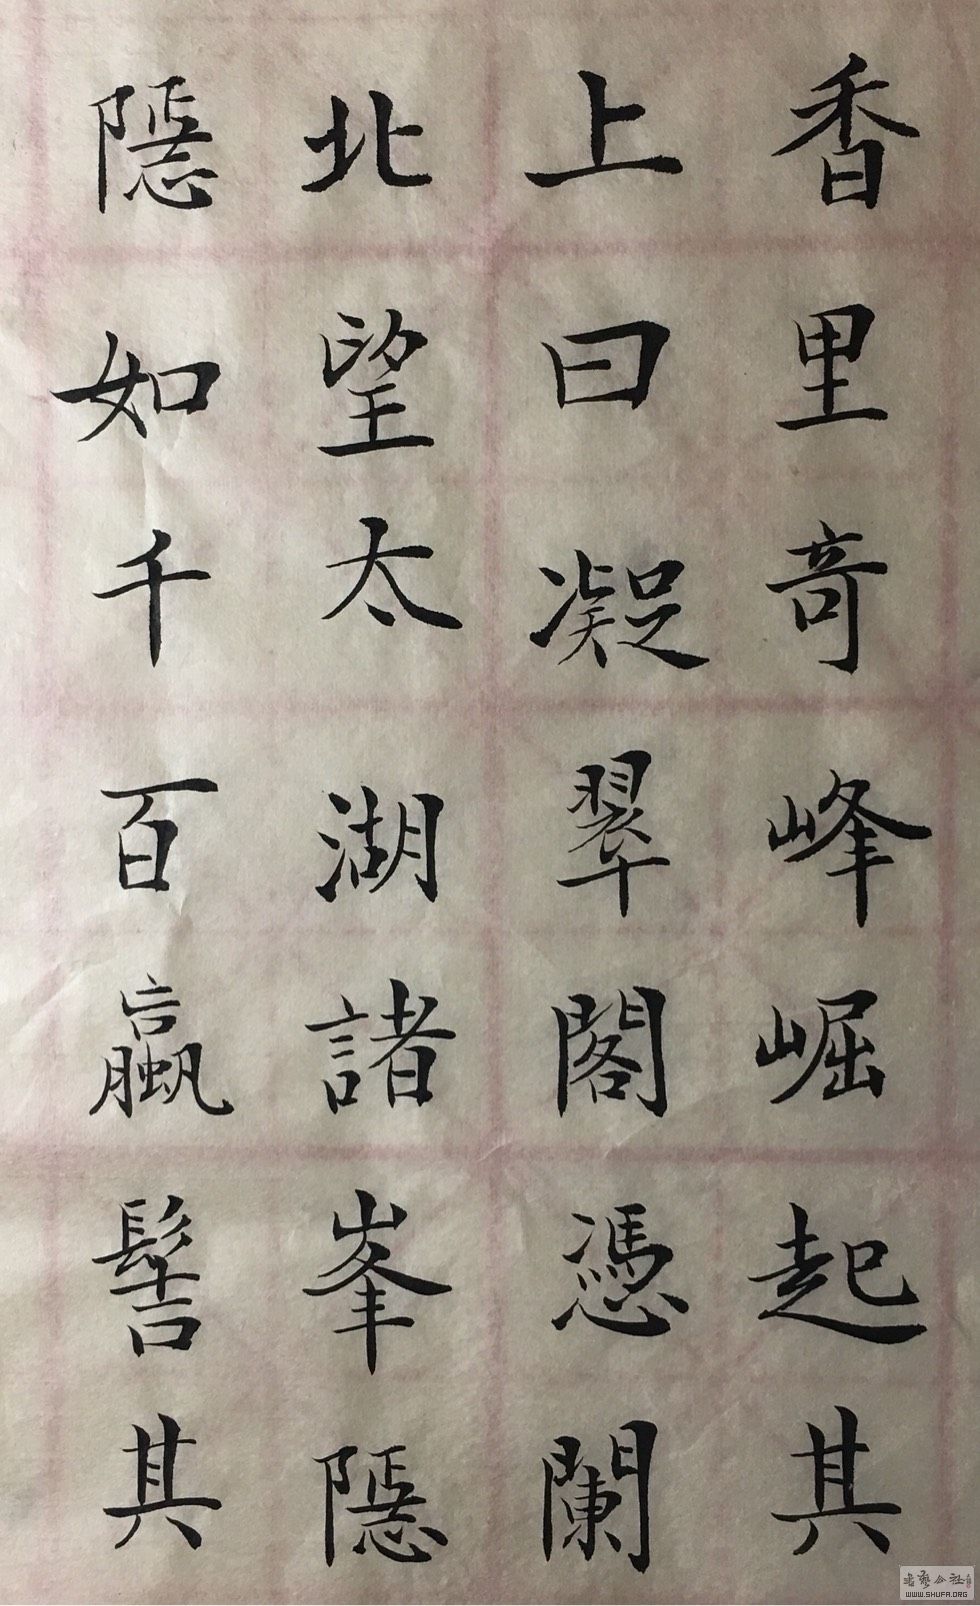 香里竒峰崛起其
上曰凝翠閣憑闌
北望太湖諸峯隱
隱如千百蠃髻其
书艺公社
WWW.SHUFA.ORG